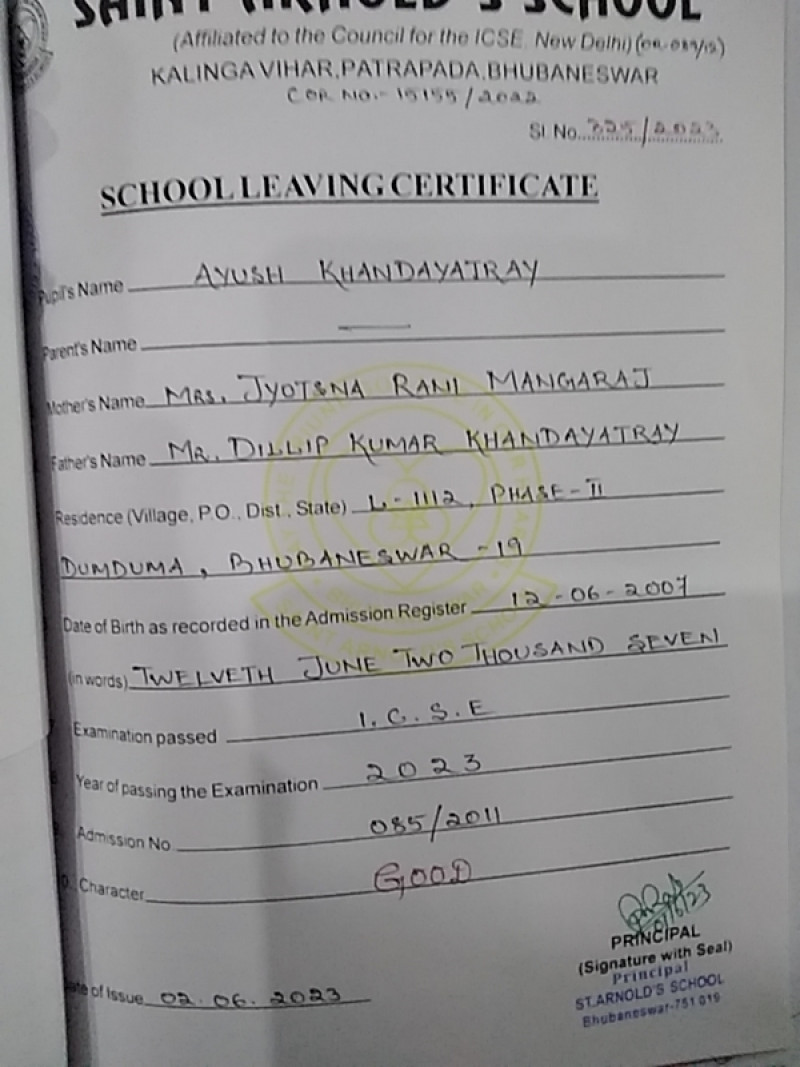 SAINT ARNOLD'S SCHOOL
(Affiliated to the Council for the ICSE, New Delhi)
KALINGA VIHAR, PATRAPADA, BHUBANESWAR
COR NO.- 15155/2022
Sl. No. 325/2023
SCHOOL LEAVING CERTIFICATE
Pupil's Name AYUSH KHANDAYATRAY
Parent's Name —
Mother's Name MRS. JYOTSNA RANI MANGARAJ
Father's Name MR. DILLIP KUMAR KHANDAYATRAY
Residence (Village, P.O., Dist., State) L-1112, PHASE-II
DUMDUMA, BHUBANESWAR -19
Date of Birth as recorded in the Admission Register 12-06-2007
(in words) TWELVETH JUNE TWO THOUSAND SEVEN
Examination passed I.C.S.E
Year of passing the Examination 2023
Admission No 085/2011
Character GOOD
PRINCIPAL
(Signature with Seal)
Principal
ST.ARNOLD'S SCHOOL
Bhubaneswar-751 019
Date of Issue 02.06.2023